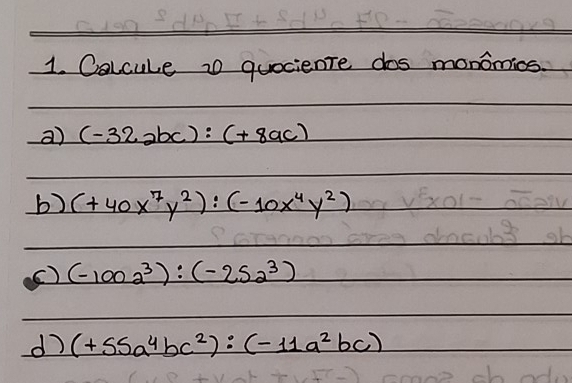 1. Calcule o quociente dos monômios.
a) (-32abc) : (+8ac)
b) (+40x⁷y²) : (-10x⁴y²)
c) (-100a³) : (-25a³)
d) (+55a⁴bc²) : (-11a²bc)